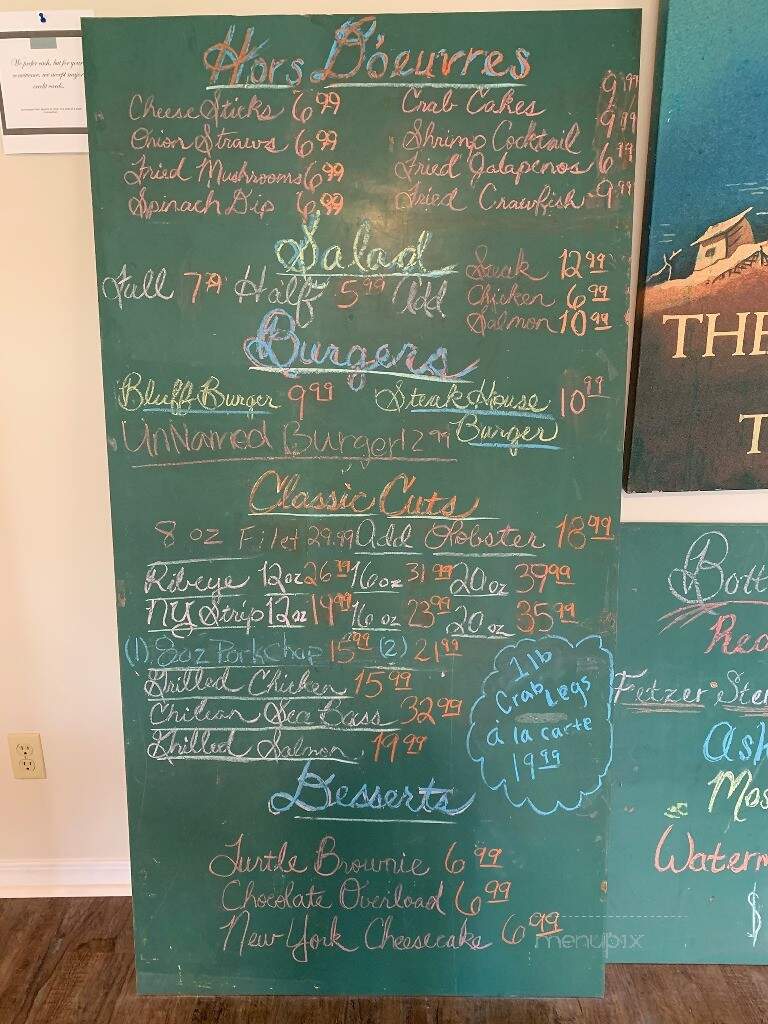 We prefer cash, but for your
convenience, we accept major
credit cards.
Hors D'oeuvres
Cheese Sticks 6.99 Crab Cakes 9.99
Onion Straws 6.99 Shrimp Cocktail 9.99
Fried Mushrooms 6.99 Fried Jalapenos 6.99
Spinach Dip 6.99 Fried Crawfish 9.99
Salad
Full 7.99 Half 5.99 Add Steak 12.99
Chicken 6.99
Salmon 10.99
Burgers
Bluff Burger 9.99 Steak House Burger 10.99
UnNamed Burger 12.99
Classic Cuts
8 oz Filet 29.99 Add Lobster 18.99
Ribeye 12oz 26.99 16oz 31.99 20oz 39.99
NY Strip 12oz 19.99 16oz 23.99 20oz 35.99
(1) 8oz Pork Chop 15.99 (2) 21.99
Grilled Chicken 15.99
Chilean Sea Bass 32.99
Grilled Salmon 19.99
1 lb
Crab Legs
à la carte
19.99
Desserts
Turtle Brownie 6.99
Chocolate Overload 6.99
New York Cheesecake 6.99
menupix
THE
T
Bott
Red
Fetzer Ste
Ash
Mos
Waterm
$